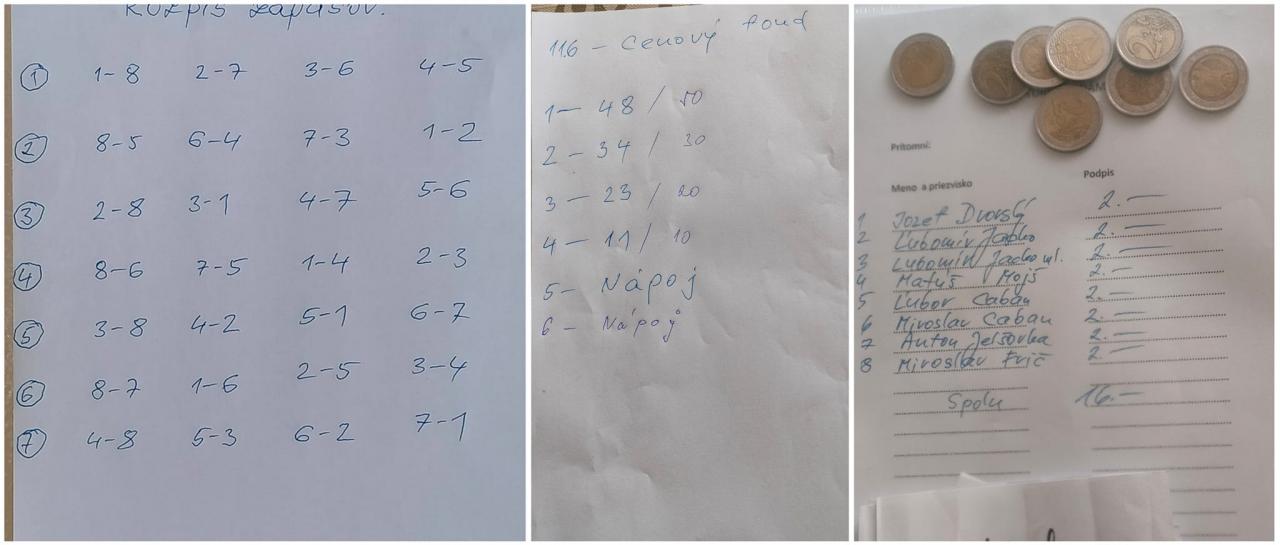 Rozpis zápasov.
① 1-8 2-7 3-6 4-5
② 8-5 6-4 7-3 1-2
③ 2-8 3-1 4-7 5-6
④ 8-6 7-5 1-4 2-3
⑤ 3-8 4-2 5-1 6-7
⑥ 8-7 1-6 2-5 3-4
⑦ 4-8 5-3 6-2 7-1
116 - Cenový fond
1- 48 / 50
2 - 34 / 30
3 - 23 / 20
4 - 11 / 10
5- Nápoj
6 - Nápoj
Prítomní:
Meno a priezvisko Podpis
1 Jozef Dvorský 2.-
2 Ľubomír Jacko 2.-
3 Ľubomír Jacko ml. 2.-
4 Matúš Mojš 2.-
5 Ľubor Caban 2.-
6 Miroslav Caban 2.-
7 Anton Jelšovka 2.-
8 Miroslav Frič 2.-
Spolu 16.-